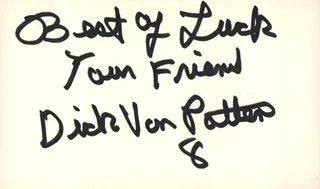 Best of Luck
Your Friend
Dick Van Patten
8